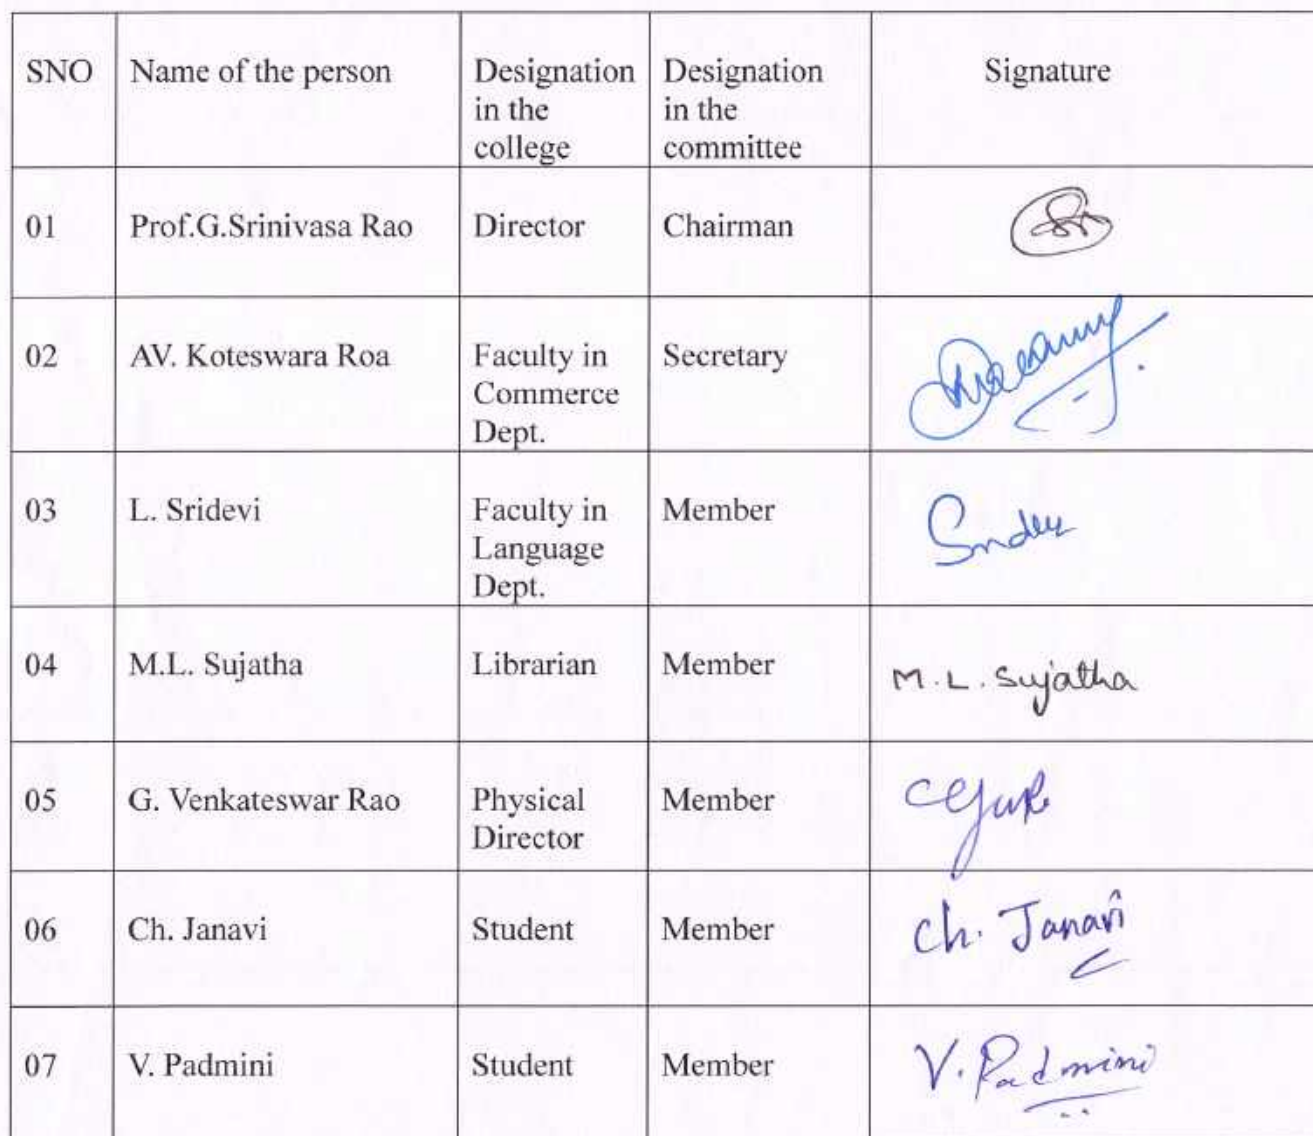 SNO Name of the person Designation in the college Designation in the committee Signature
01 Prof.G.Srinivasa Rao Director Chairman
02 AV. Koteswara Roa Faculty in Commerce Dept. Secretary
03 L. Sridevi Faculty in Language Dept. Member
04 M.L. Sujatha Librarian Member M.L. Sujatha
05 G. Venkateswar Rao Physical Director Member
06 Ch. Janavi Student Member Ch. Janavi
07 V. Padmini Student Member V. Padmini